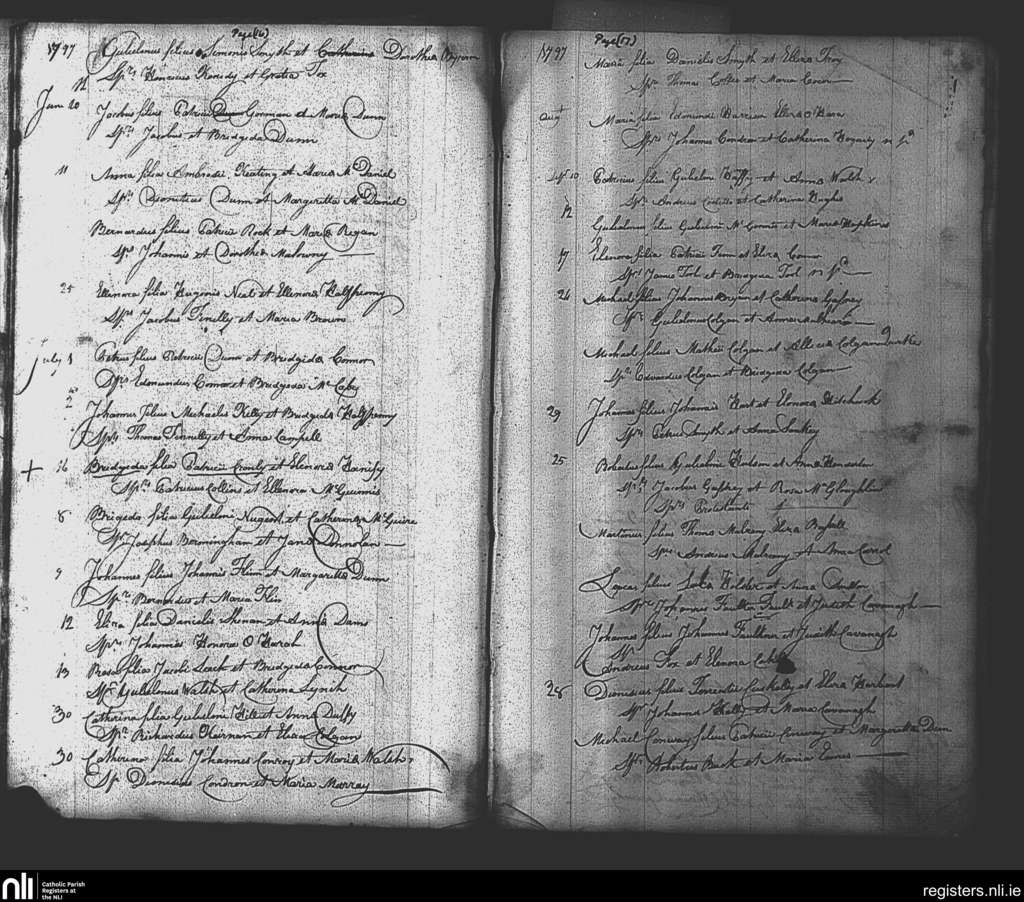 Page (16)
1797 Gulielmus filius Simonis Smyth et Catharina Dorothea Byrom
Sprs Honorius Kenedy et Gratia Fox
12
June 20 Jacobus filius Patricii Gorman et Maria Dunn
Sprs Jacobus et Bridgida Dunn
11 Anna filia Ambrosii Keating et Maria McDaniel
Sprs Dionitius Dunn et Margeritta McDaniel
Bernardus filius Patricii Rock et Maria Regan
Sprs Johannis et Dorothea Malowny
25 Ellenora filia Eugenis Neal et Ellenora Halfpenny
Sprs Jacobus Finelly et Maria Brown
July 1 Petrus filius Patricii Dunn et Bridgida Connor
Sprs Edmundus Connor et Bridgida McCabe
2 Johannes filius Michaelis Kelly et Bridgida Halfpenny
Sprs Thomas Finnelly et Anna Campell
+ 16 Bridgida filia Patricii Cronly et Elenora Hanify
Sprs Patricius Collins et Ellenora McGuinnis
8 Brigeda filia Gulielmi Nugent et Catherina McGuire
Sprs Josephus Bermingham et Jana Donnolan
9 Johannes filius Johannis Flin et Margaretta Dunn
Sprs Bernardus et Maria Flin
12 Eliza filia Danielis Shenan et Anna Dams
Sprs Johannis Honora O Harah
13 Rosa filia Jacobi Leech et Bridgida Connor
Sprs Gulielmus Walsh et Catherina Lynch
30 Catherina filia Gulielmi Hill et Anna Duffy
Sprs Richardus Kiernan et Eliza Colgan
30 Catherina filia Johannes Conroy et Maria Walsh
Sp Dionisius Condron et Maria Murray
Page (17)
1797 Maria filia Danielis Smyth et Ellena Troy
Sprs Thomas et Maria
Aug Maria filia Edmundi et Ellena O Hara
Sprs Johannes Condron et Catherina Fogarty
10 Patricius filius Gulielmi Duffy et Anna Walsh
Sprs Andreas Costello et Catherina Hughes
12 Gulielmus filius Gulielmi et Maria Hopkins
17 Elenora filia Patricii et Eliza Connor
Sprs James Tool et Tool
24 Michael filius Johannis Bryan et Catherina Gafney
Sprs Gulielmus Colgan et Anna
Michael filius Mathei Colgan et Colgan
Sprs Edvardus Colgan et Bridgida Colgan
29 Johannes filius Johannis Hart et Elenora
Sprs Petrus Smyth et Anna Sankey
25 Robertus filius Gulielmi et Anna
Sprs Jacobus Gafney et Rosa McGloughlin
Sprs Protestants
Martinus filius Thoma Mulreny Eliza
Sprs Andreas Mulreny et Anna Carrol
Lucas filius Luka Wilder et Anna
Sprs Johannes Faulkn Faulk et Judith Cavanagh
Johannes filius Johannes Faulkner et Judith Cavanagh
Sprs
Andreas Fox et Elenora
28 Dionisius filius Terrentii et Eliza
Sprs Johannes Kelly et Maria Cavanagh
Michael Conway filius Patricii Conway et Margaretta Dunn
Sprs Robertus et Maria
nli
Catholic Parish
Registers at
the NLI
registers.nli.ie